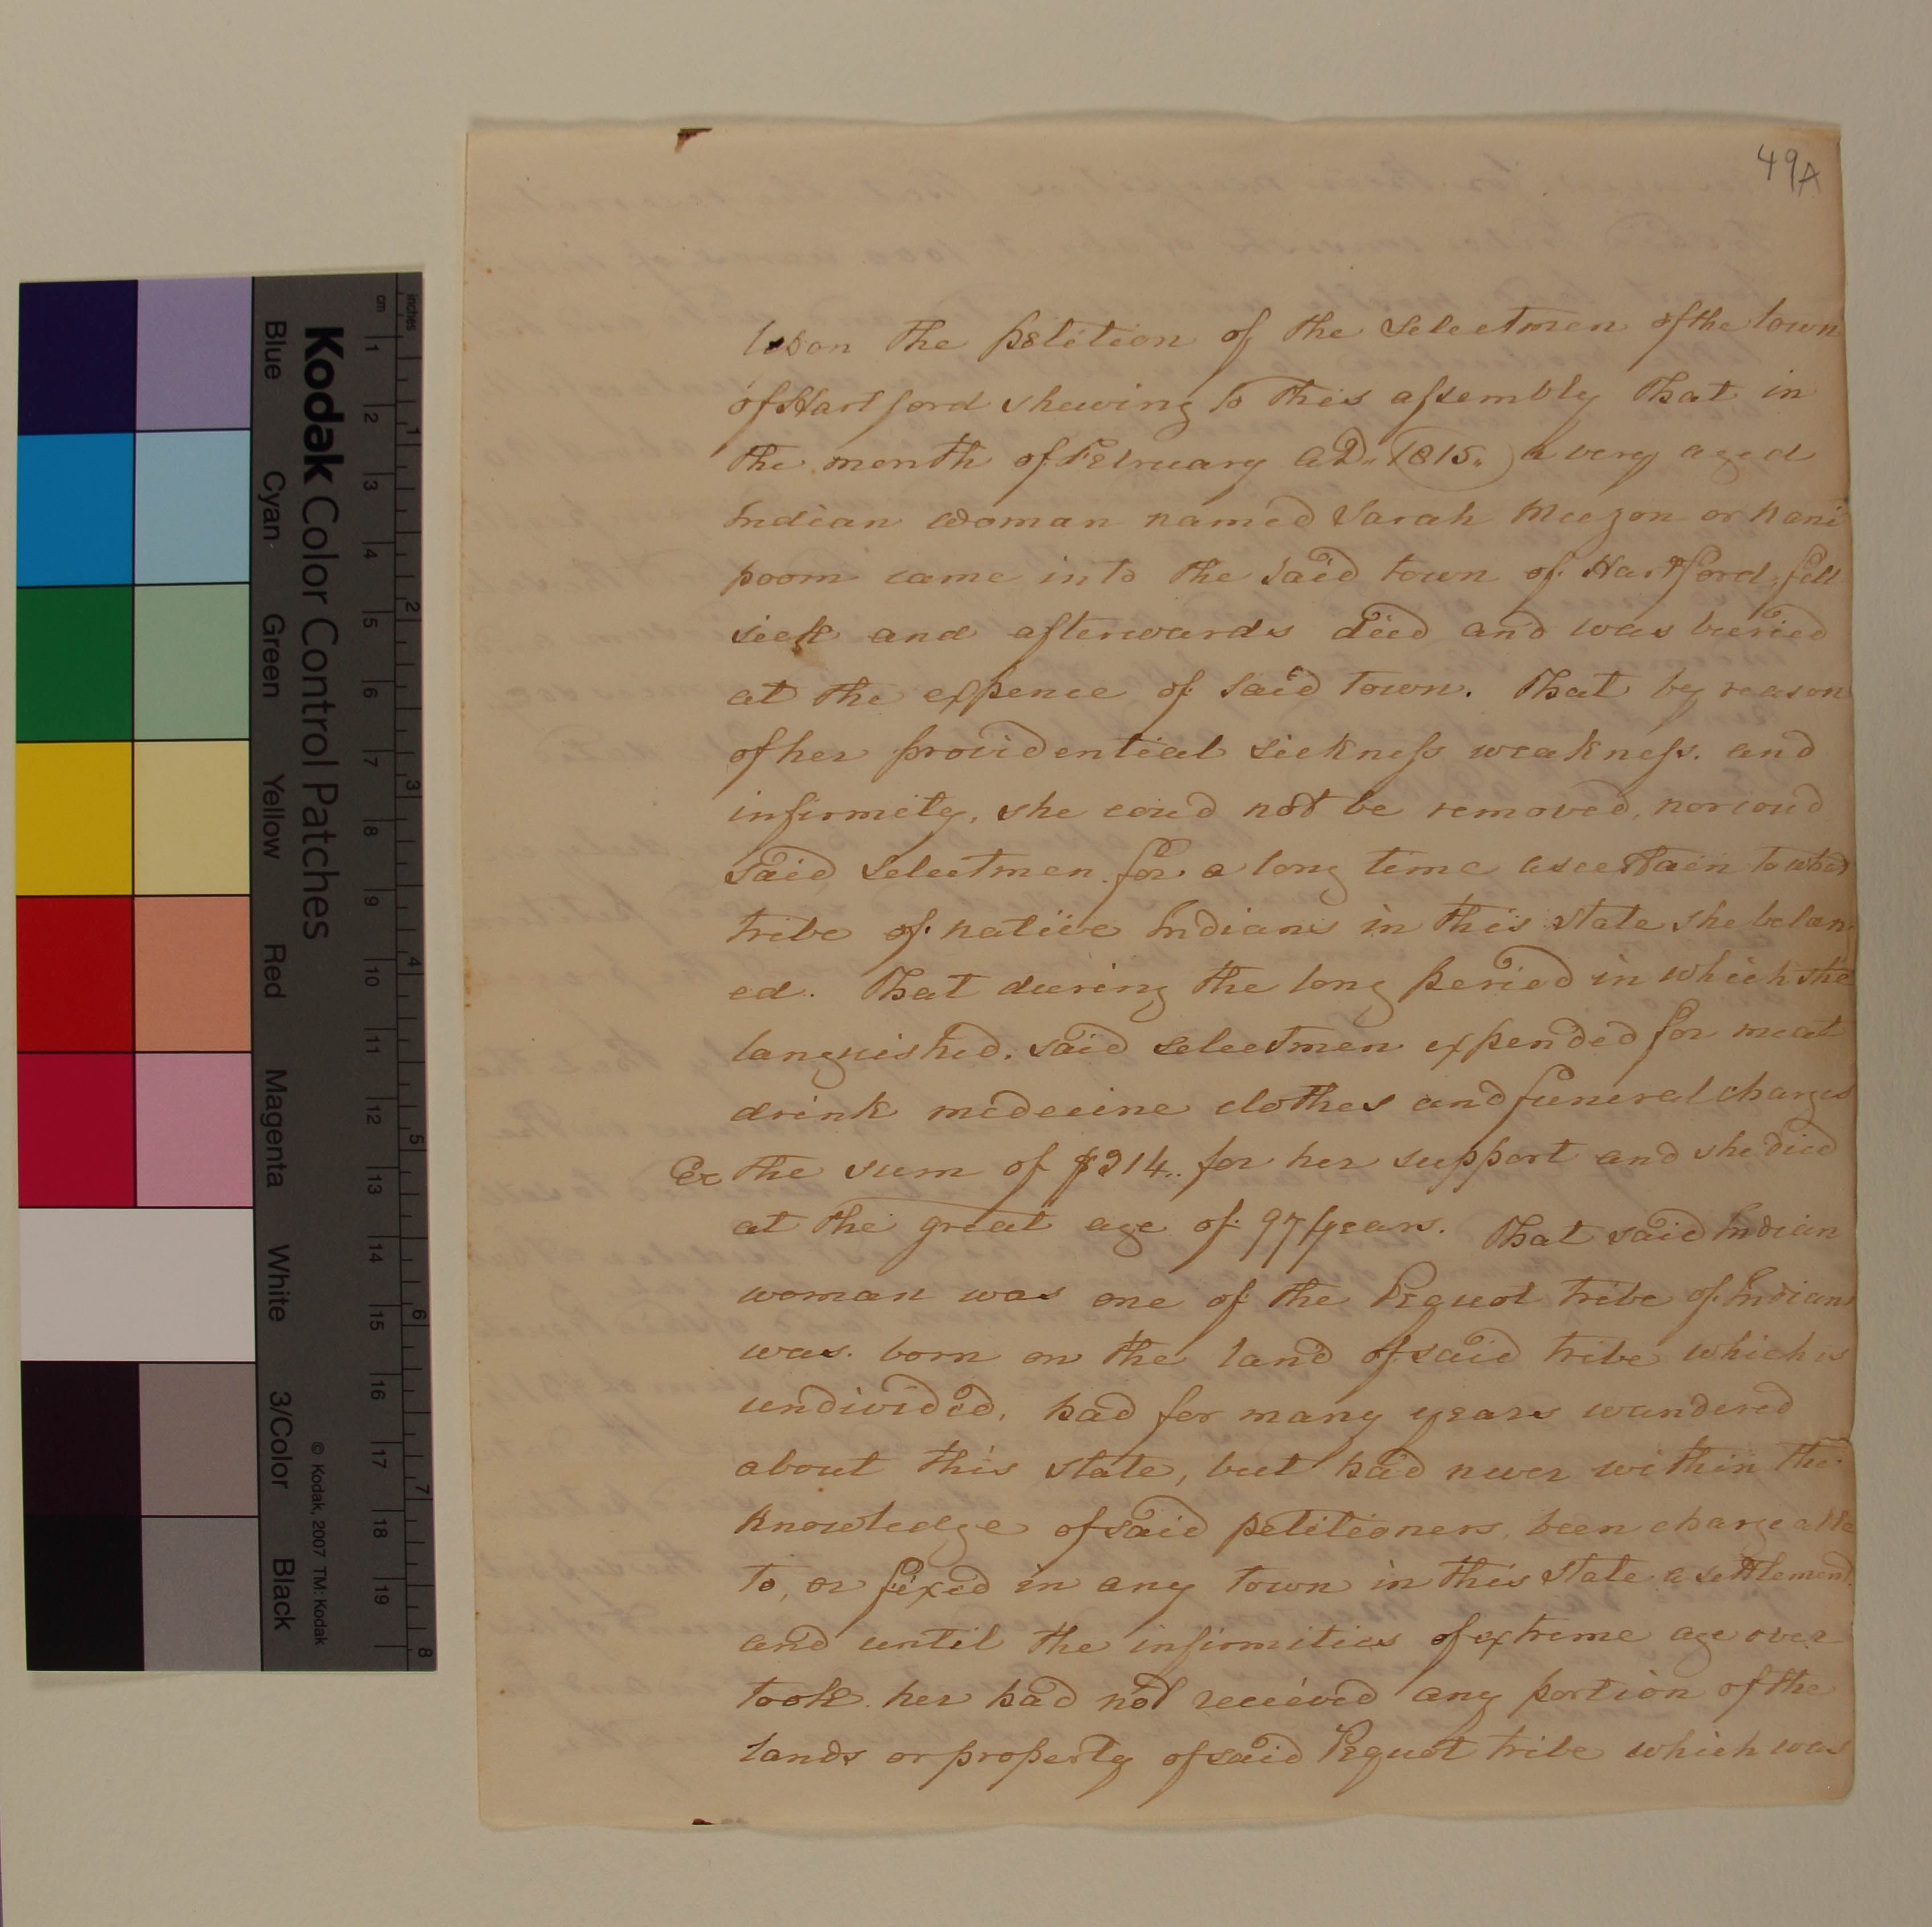 49A
Upon the petition of the Selectmen of the town
of Hartford shewing to this assembly That in
the month of February AD. 1815. a very aged
Indian woman named Sarah Meazon or Nani
poom came into the said town of Hartford, fell
sick and afterwards died and was buried
at the expence of said town. That by reason
of her providential sickness weakness. and
infirmity, she coud not be removed, nor coud
said selectmen for a long time ascertain to what
tribe of native Indians in this state she belon
ed. That during the long period in which she
languished. said selectmen expended for meat
drink medecine clothes and funeral charges
Ex the sum of $214.. for her support and she died
at the great age of 97 years. That said Indian
woman was one of the Pequot tribe of Indians
was born on the land of said tribe which is
undivided, had for many years wandered
about this state, but had never within the
knowledge of said petitioners, been chargeable
to, or fixed in any town in this state a settlement
and until the infirmities of extreme age over
took her had not received any portion of the
lands or property of said Pequot tribe which was
Kodak Color Control Patches
Blue Cyan Green Yellow Red Magenta White 3/Color Black
© Kodak, 2007 TM: Kodak
inches 1 2 3 4 5 6 7 8
cm 1 2 3 4 5 6 7 8 9 10 11 12 13 14 15 16 17 18 19